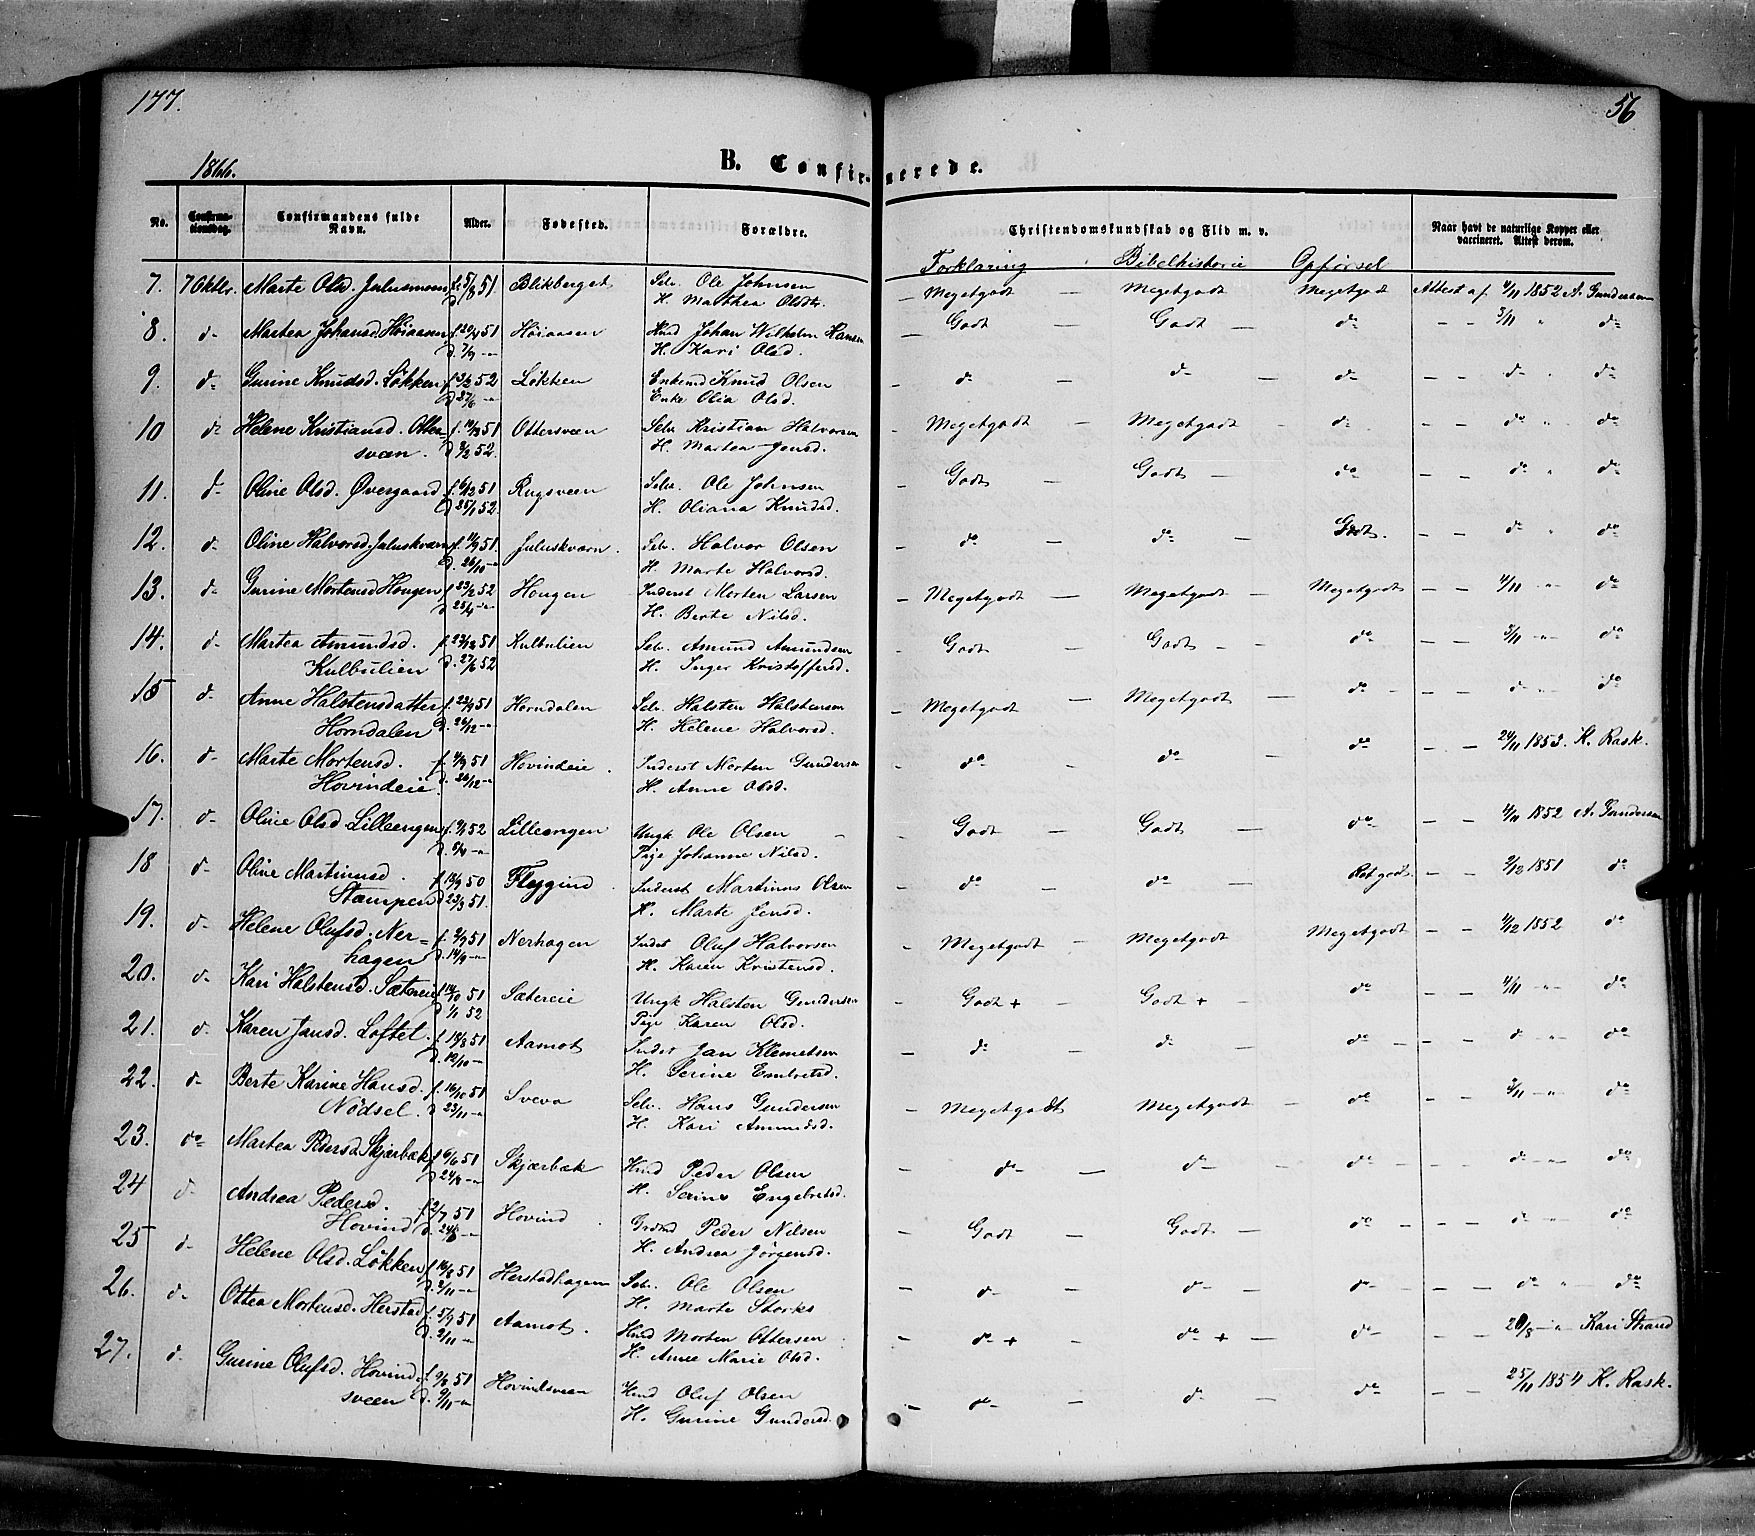 177.
56
1866.
B. Confirmerede.
No. Confirmationsdag. Confirmandens fulde Navn. Alder. Fødested. Forældre. Christendomskundskab og Flid m. v. Naar havt de naturlige Kopper eller vaccineret. Attest derom.
Forklaring Bibelhistorie Opførsel
7. 7 Oktbr. Marte Olsd. Julusmoen f. 5/8 51 Blikberget Selv. Ole Johnsen — Megetgodt — Megetgodt Megetgodt Attest af 4/11 1852 A. Gundersen
H. Marthea Olsdtr.
8. d- Martea Johansd. Høiaasen f. 20/4 51 Høiaasen Hmd Johan Wilhelm Hansen — Godt — Godt — do — — 3/11 " do
d. 7/9 -"- H. Kari Olsd.
9. d- Gurine Knudsd. Løkken f. 3/2 52 Løkken Enkemd Knud Olsen — do — do — do — — do " do
d. 27/6 -"- Enke Olia Olsd.
10 d- Helene Kristiansd. Otter- f. 11/12 51 Ottersveen Selv. Kristian Halvorsen — Megetgodt — Megetgodt — do — — do " do
sveen. d. 8/2 52. H. Martea Jensd.
11. d- Oline Olsd. Øvergaard f. 6/12 51 Rugsveen Selv. Ole Johnsen — Godt — Godt — do — — do " do
d. 25/1 52. H. Oliana Knudsd.
12. d- Oline Halvorsd. Juluskværn f. 11/9 51. Juluskværn. Selv. Halvor Olsen — do — do — Godt. — — do " do
d. 26/10 -"- H. Marte Halvorsd.
13. d- Gurine Mortensd Haugen f. 23/2 52 Haugen Inderst Morten Larsen — Megetgodt — Megetgodt — Megetgodt — — 4/11 -"- do
d. 25/4 -"- H. Berte Nilsd.
14. d- Martea Amundsd. f. 23/12 51 Kulbulien Selv. Amund Amundsen — Godt — Godt — do — — 3/11 -"- do
Kulbulien d. 27/6 52 H. Inger Kristoffersd.
15 d- Anne Halstensdatter f. 22/9 51 Horndalen Selv. Halsten Halstensen — Megetgodt — Megetgodt — do — — do -"- do
Horndalen d. 26/12 -"- H. Helene Halvorsd.
16. d- Marte Mortensd. f. 4/9 51 Hovindeie. Inderst Morten Gundersen — do — do — do — — 24/11 1853. K. Rask.
Hovindeie. d. 26/12 -"- H. Anne Olsd.
17. d- Oline Olsd Lilleengen f. 9/1 52 Lilleengen Ungk Ole Olsen — Godt — Godt — do — — 4/11 1852 A. Gundersen
d. 5/4 -"- Pige Johanne Nilsd.
18 d- Oline Martinusd. f. 19/9 50 Fleggind Inderst Martinus Olsen — do — do — Retgodt. — — 2/12 1851 do
Stampen d. 23/3 51. H. Marte Jensd.
19. d- Helene Olufsd. Ner- f. 2/9 51 Nerhagen Inderst Oluf Halvorsen — Megetgodt — Megetgodt Megetgodt — — 4/12 1852 do
hagen d. 14/9 -"- H. Karen Kristensd.
20. d- Kari Halstensd. Sætereie f. 14/10 51 Sætereie Ungk Halsten Gundersen — Godt + Godt + — do — — 4/11 -"- do
d. 1/1 52 Pige Karen Olsd.
21. d- Karen Jansd. Loftet. f. 18/8 51 Aamot Inderst Jan Klemetsen — do — do — do — — do -"- do
d. 12/10 — H. Serine Embretsd.
22. d- Berte Karine Hansd. f. 16/10 51 Svevo Selv. Hans Gundersen — Megetgodt Megetgodt — do — — 3/11 -"- do
Nødsel. d. 23/11 -"- H. Kari Amundsd.
23. do Martea Pedersd. Skjærbæk f. 6/6 51 Skjærbæk Hmd Peder Olsen — do — do — do — — do -"- do
d. 24/8 -"- H. Serine Engebretsd.
24 d- Andrea Pedersd. f. 2/7 51 Hovind. Grdmd Peder Nilsen — Godt — Godt — do — — do -"- do
Hovind d. 24/8 -"- H. Andrea Jørgensd.
25 d- Helene Olsd. Løkken f. 16/8 51 Herstadhagen Selv. Ole Olsen — do — do — do — — do " do
d. 2/11 -"- H. Marte Storks
26. d- Ottea Mortensd. Herstad f. 5/9 51 Aamot. Hmd Morten Ottersen — do + do + — do — — 20/8 -"- Kari Strand
d. 2/11 -"- H. Anne Marie Olsd.
27. d- Gurine Olufsd. Hovind- f. 9/8 51 Hovindsveen Hmd Oluf Olsen — do — do — do — — 25/11 1854 K. Rask.
sveen d. 9/11 -"- H. Gurine Gundersd.